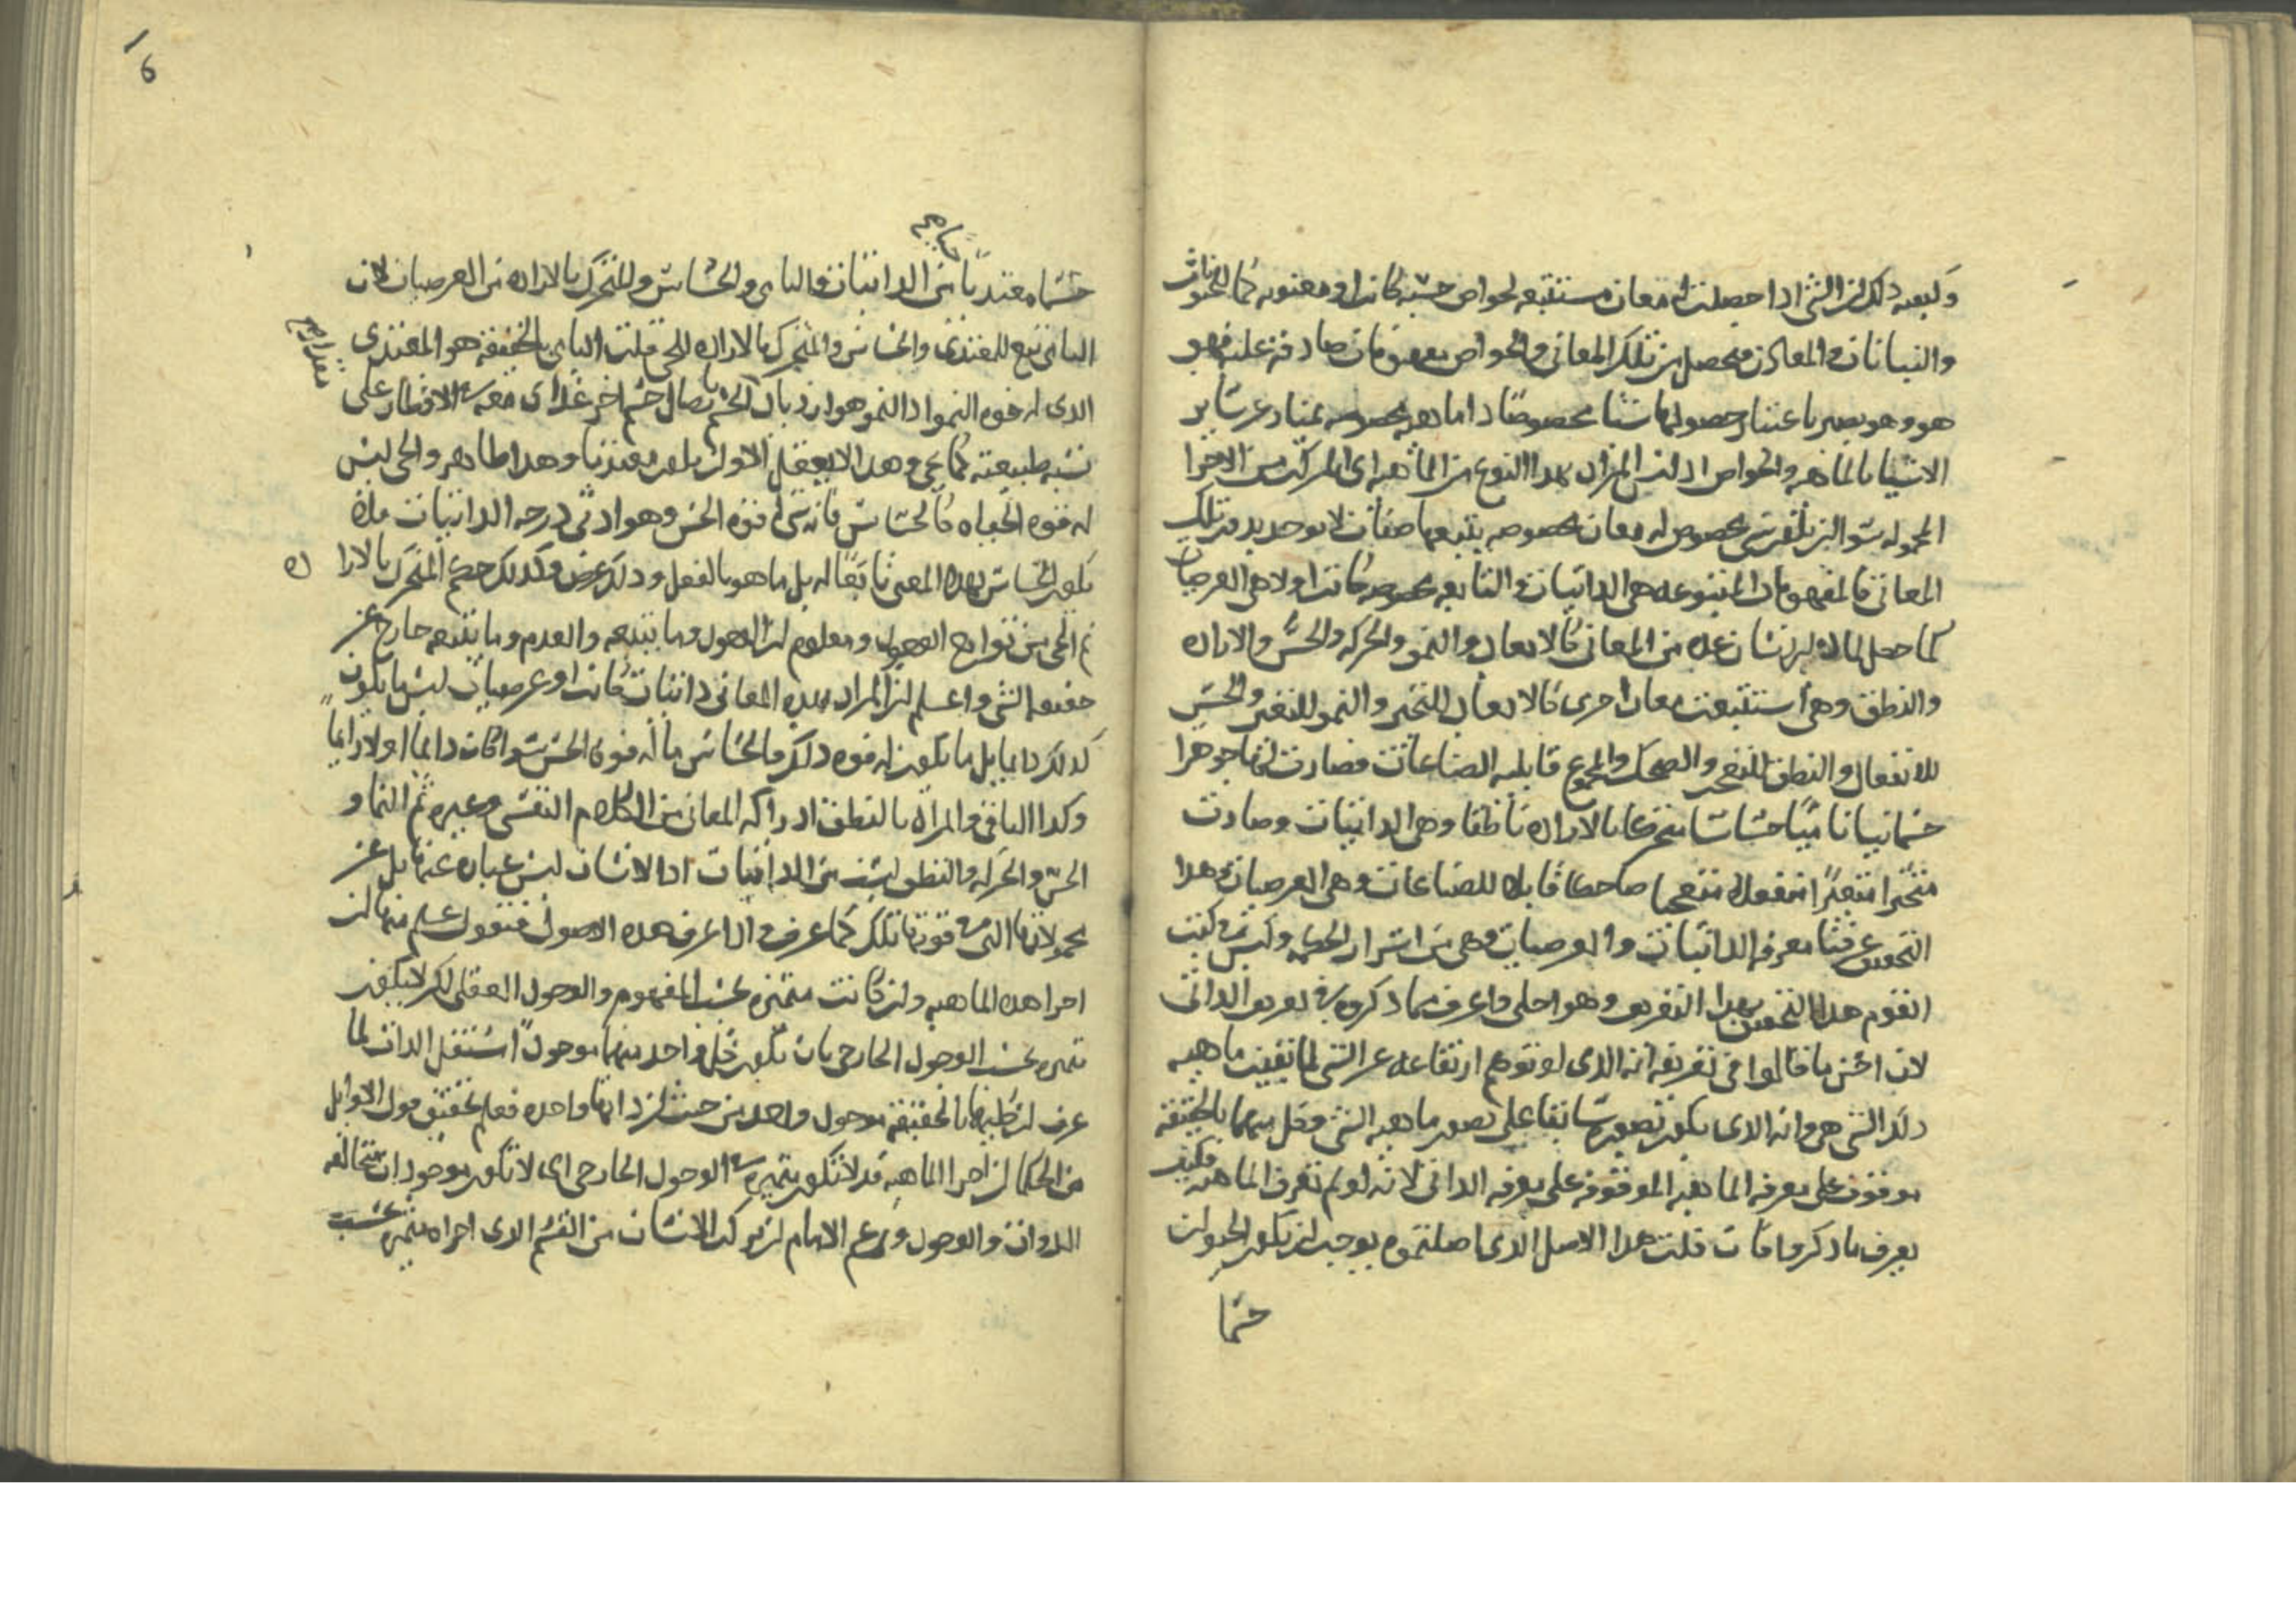 ولبعد ذلك ان الشى اذا حصلت له معان مستتبعه لخواص حسيه كانت او معنويه كما للحيوانات
والنباتات والمعادن فحصل من تلك المعانى والخواص مفهومات صادقه عليه فهو
هو وهو يصير باعتبار حصولها شيا مخصوصا ذا ماهيه مخصوصه يمتاز عن ساير
الاشيا بالماهيه والخواص اذ ليس المراد بهذا النوع من الماهيه اى المركب من الاجزا
المحموله سوا لن يكون شى مخصوص له معان مخصوصه يتبعها صفات لا يوجد بدون تلك
المعانى فالمفهومات المتبوعه هى الذاتيات والتابعه مخصوصه كانت او لا هى العرضيات
كما حصل لماده الانسان عده من المعانى كالابعاد والنمو والحركه والحس والاراده
والنطق وهى استتبعت معان اخرى كالابعاد للتحيز والنمو للتغير والحس
للانفعال والنطق للتعجب والضحك والمجموع قابليه الصناعات فصارت لها جوهرا
جسمانيا ناميا حساسا متحركا بالاراده ناطقا وهى الذاتيات وصارت
متحيزا متغيرا منفعلا متعجبا ضاحكا قابلا للصناعات وهى العرضيات هذا
التحقيق عرفنا معرفه الذاتيات والعرضيات وهى من اسرار الحكمه وليس فى كتب
القوم هذا التحقيق بهذا التعريف وهو اجلى واعرف مما ذكروه فى تعريف الذاتى
لان احسن ما قالوا فى تعريفه انه الذى لو توهم ارتفاعه عن الشى لما بقيت ماهيه
ذلك الشى هى وانه الذى يكون تصوره سابقا على تصور ماهيه الشى وكل منهما بالحقيقه
موقوف على معرفه الماهيه الموقوفه على معرفه الذاتى لانه لو لم تعرف الماهيه فكيف
يعرف ما ذكروا فان قلت هذا الاصل الذى اصلتموه يوجب لن يكون الحيوان
جسما
6
جسما مغتذيا من الذاتيات والنامى والحساس والمتحرك بالاراده من العرضيات لان
النامى تبع للمغتذى والحساس والمتحرك بالاراده للحى قلت النامى بالحقيقه هو المغتذى
الذى له قوه النمو اذ النمو هو ازدياد الجسم باتصال جسم اخر غذاى معه فى الاقطار على
نسبه طبيعته كما يجى وهذا لا يعقل الا ولن يكون مغتذيا وهذا ظاهر والحى ليس
له قوه الحياه كالحساس فانه شى له قوه الحس وهو ادنى درجه الذاتيات فلا
يكون الحساس بهذا المعنى تابعا له بل ما هو بالفعل وذلك عرض وكذلك حكم المتحرك بالاراده
ثم الحى من توابع الوجود ومعلوم لن الوجود وما يتبعه والعدم وما يتبعه خارج عن
حقيقه الشى واعلم لن المراد بهذه المعانى ذاتيات كانت او عرضيات ليس ما يكون
كذلك دايما بل ما يكون له قوه ذلك فالحساس ما له قوه الحس سوا كانت دايما او لا دايما
وكذا الباقى والمراد بالنطق ادراكه المعانى من الكلام النفسى وغيره ثم النما و
الحس والحركه والنطق ليست من الذاتيات اذ الانسان ليس عباره عنها بل عن
محمولاتها التى فى قوتها تلك كما عرف واذا عرف هذه الاصول فنقول علم منها لن
اجزا هذه الماهيه ولن كانت متميزه بحسب المفهوم والوجود العقلى لكن لا يكون
تميزه بحسب الوجود الخارجى بان يكون كل واحد منها موجودا مستقل الذات لما
عرف لن كلها بالحقيقه موجود واحد من حيث لن ذاتها واحده فعلم تحقيق قول الاوايل
من الحكما لن اجزا الماهيه قد لا تكون متميزه فى الوجود الخارجى اى لا تكون موجودات متخالفه
الذوات والوجود وزعم الامام لن تركب الانسان من القسم الذى اجزاه متميزه بحسب